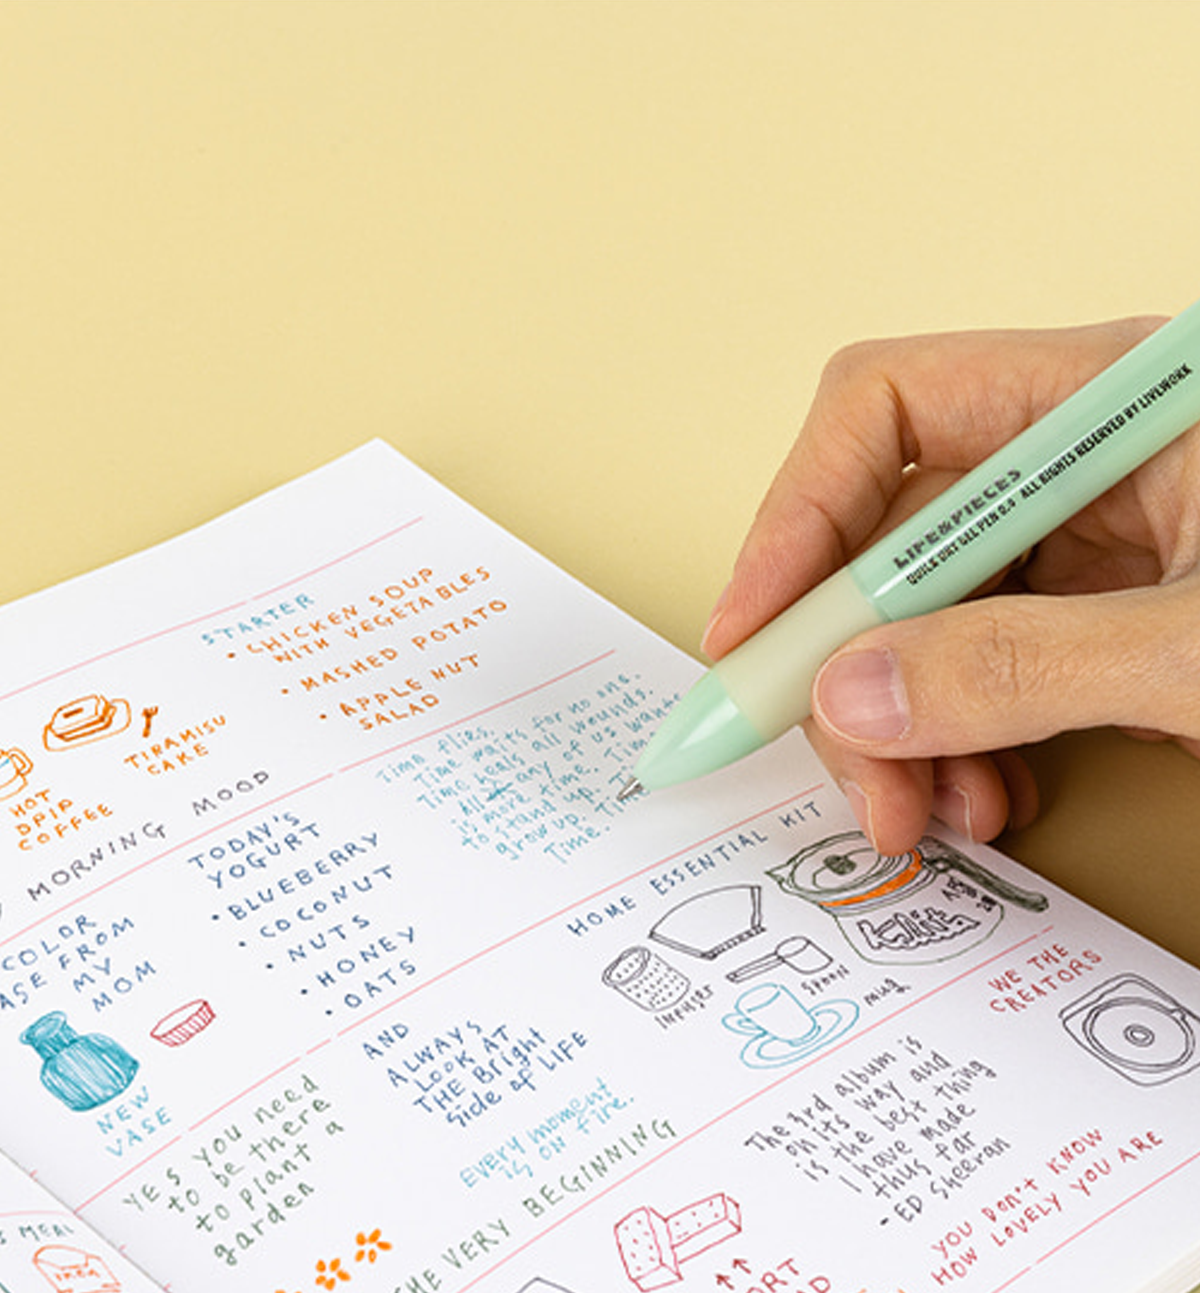 LIFE&PIECES
QUICK DRY GEL PEN 0.4 ALL RIGHTS RESERVED BY LIVEWORK
STARTER
• CHICKEN SOUP
WITH VEGETABLES
• MASHED POTATO
• APPLE NUT
SALAD
TIRAMISU
CAKE
HOT
DRIP
COFFEE
MORNING MOOD
TODAY'S
YOGURT
• BLUEBERRY
• COCONUT
• NUTS
• HONEY
• OATS
Time flies.
Time waits for no one.
Time heals all wounds.
All any of us wants
is more time. Time
to stand up. Time
grow up. Time
Time.
HOME ESSENTIAL KIT
infuser
spoon
mug
COLOR
FROM
MY
MOM
NEW
VASE
AND
ALWAYS
LOOK AT
THE Bright
Side of LIFE
EVERY moment
is on fire.
YES you need
to be there
to plant a
garden
THE VERY BEGINNING
WE THE
CREATORS
The 3rd album is
on its way and
is the best thing
I have made
thus far
- ED Sheeran
YOU DON'T KNOW
HOW LOVELY YOU ARE
MEAL